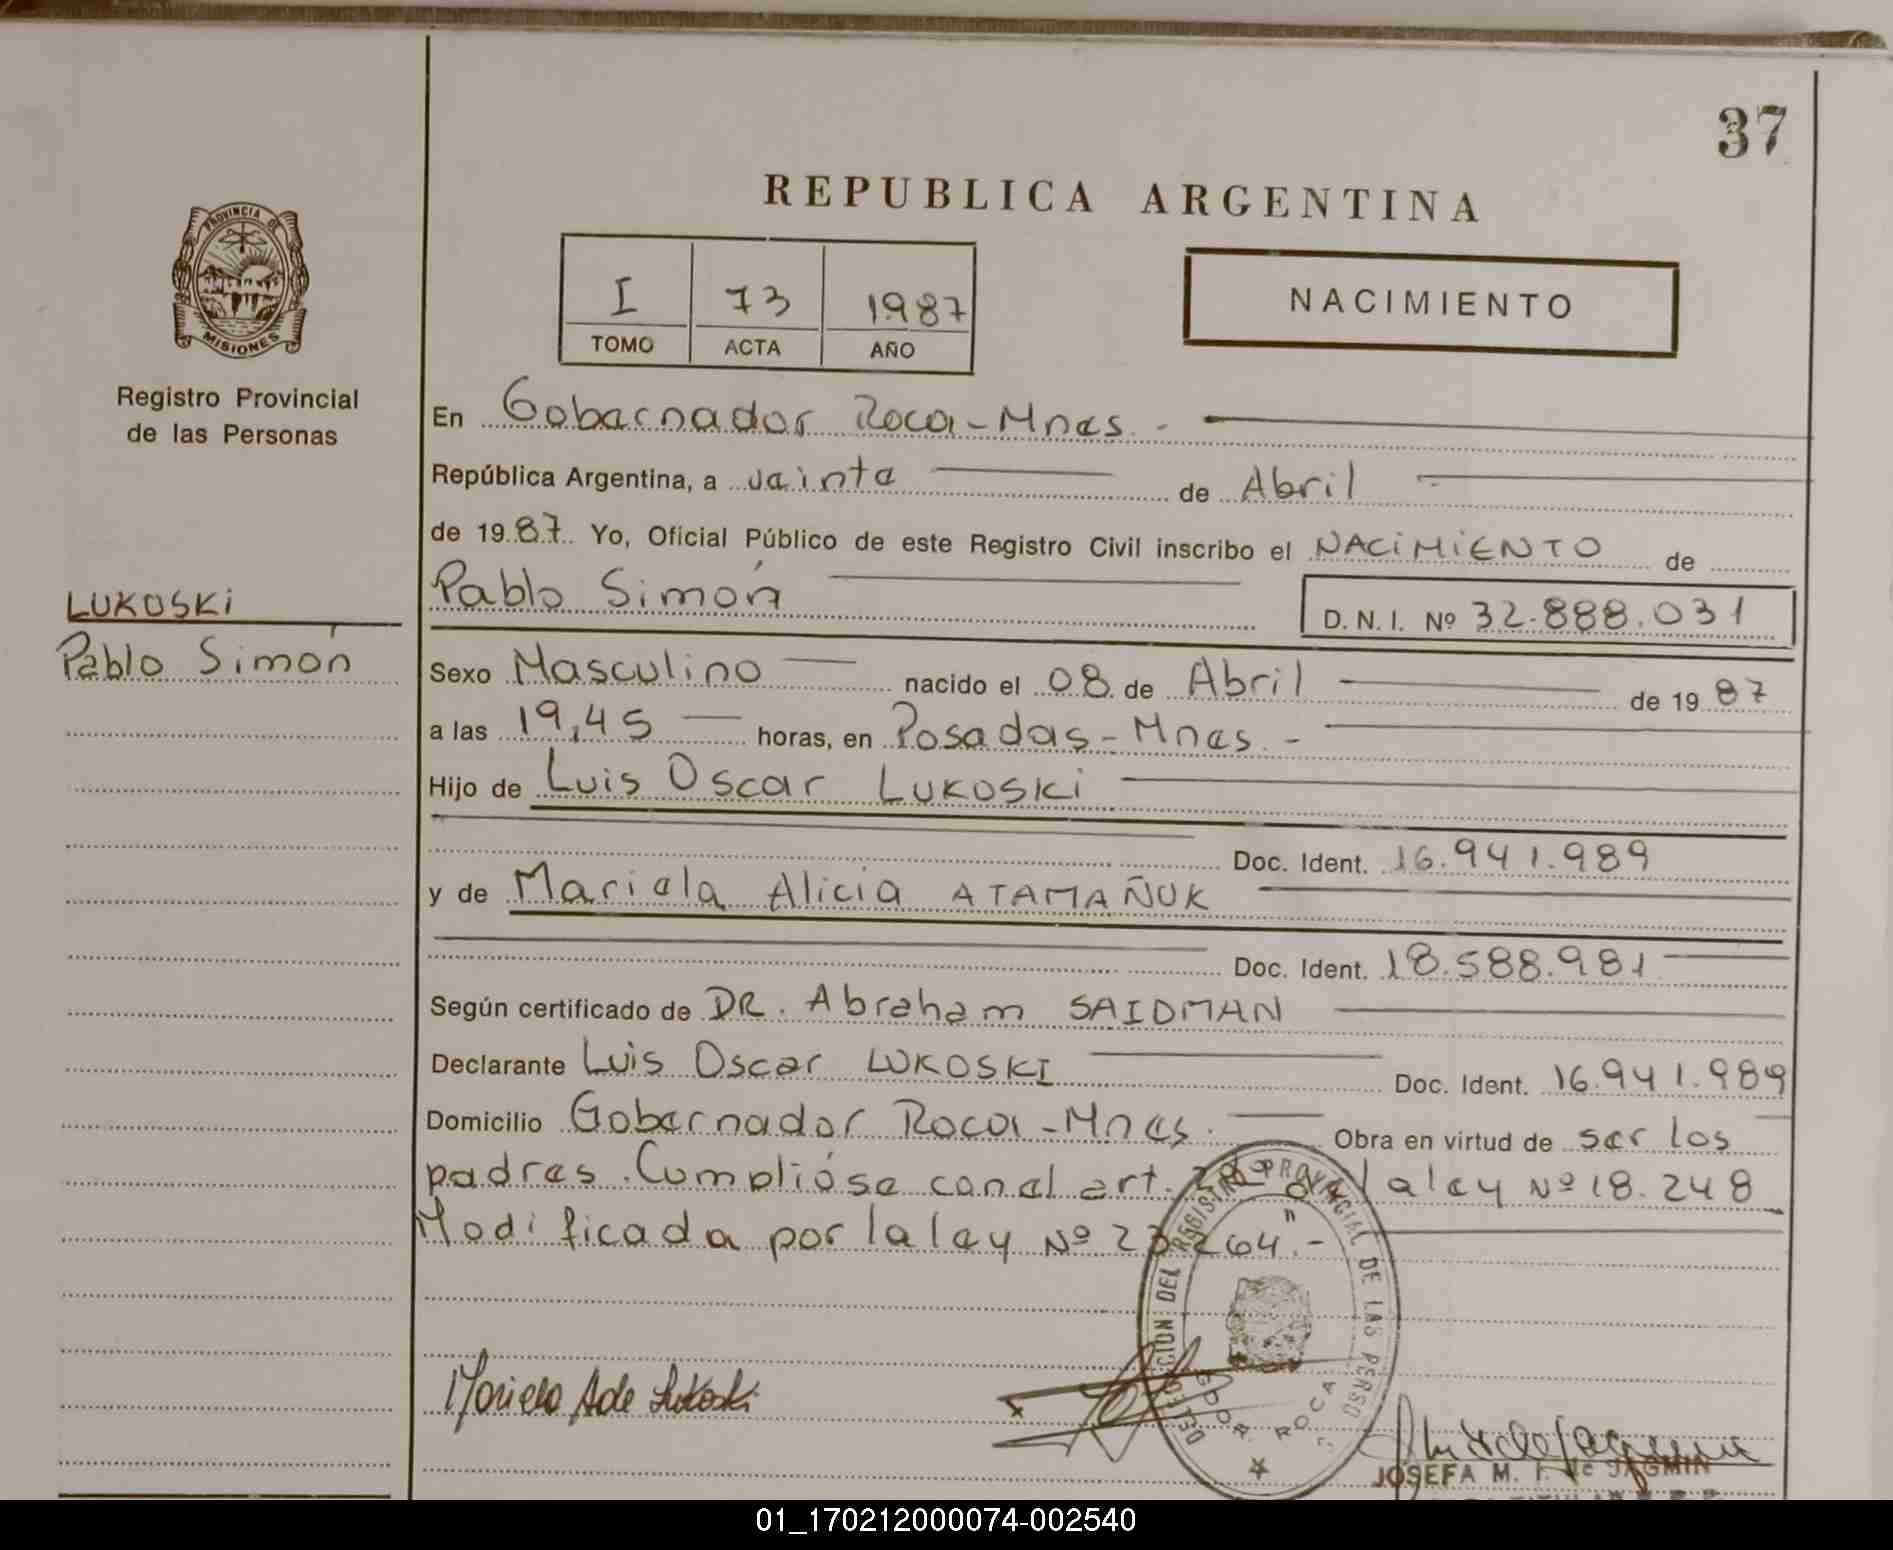 37
REPUBLICA ARGENTINA
PROVINCIA DE
MISIONES
I 73 1987
TOMO ACTA AÑO
NACIMIENTO
Registro Provincial
de las Personas
En Gobernador Roca-Mnes.-
República Argentina, a veinte de Abril
de 1987 Yo, Oficial Público de este Registro Civil inscribo el NACIMIENTO de
Pablo Simón D. N. I. Nº 32.888.031
LUKOSKI
Pablo Simón
Sexo Masculino nacido el 08 de Abril de 1987
a las 19,45 horas, en Posadas-Mnes.-
Hijo de Luis Oscar LUKOSKI
Doc. Ident. 16.941.989
y de Mariela Alicia ATAMAÑUK
Doc. Ident. 18.588.981
Según certificado de DR. Abraham SAIDMAN
Declarante Luis Oscar LUKOSKI Doc. Ident. 16.941.989
Domicilio Gobernador Roca-Mnes. Obra en virtud de ser los
padres. Cumplióse con el art. la ley Nº 18.248
Modificada por la ley Nº 23.264".-
DELEGACION DEL REGISTRO PROVINCIAL DE LAS PERSO
GDOR. ROCA
Mariela A de Lukoski
JOSEFA M. F. de JAGMIN
01_170212000074-002540